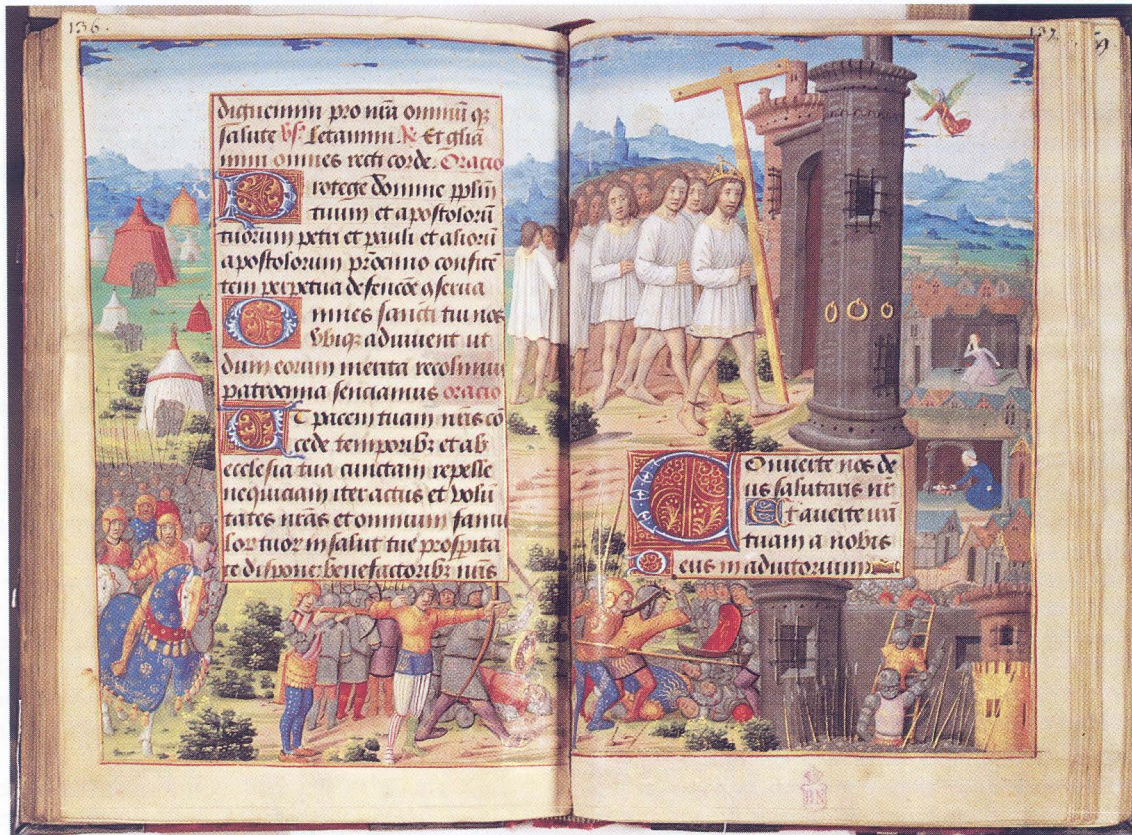 136.
dignemini pro nr̄a omniū qz
salute vs. Letamini R Et gl̄ia
mini omnes recti corde. Oracio
Protege domine pplm̄
tuum et apostolorū
tuorum petri et pauli et aliorū
apostolorum p̄cinio confitē
tem perpetua defencōe ꝯserua
Omnes sancti tui nos
vbiqz adiuuent ut
dum eorum merita recolimus
patrocinia senciamus oracio
Et pacem tuam nr̄is cō
cede temporibz et ab
ecclesia tua cunctam repelle
nequiciam iter actus et volū
tates nr̄as et omnium famu
lor tuor in salut tue prosp̄ita
te dispone: benefactoribz nr̄is
137.
Onuerte nos de
us salutaris nr̄
Et auerte irā
tuam a nobis
Deus in adiutorium
BN